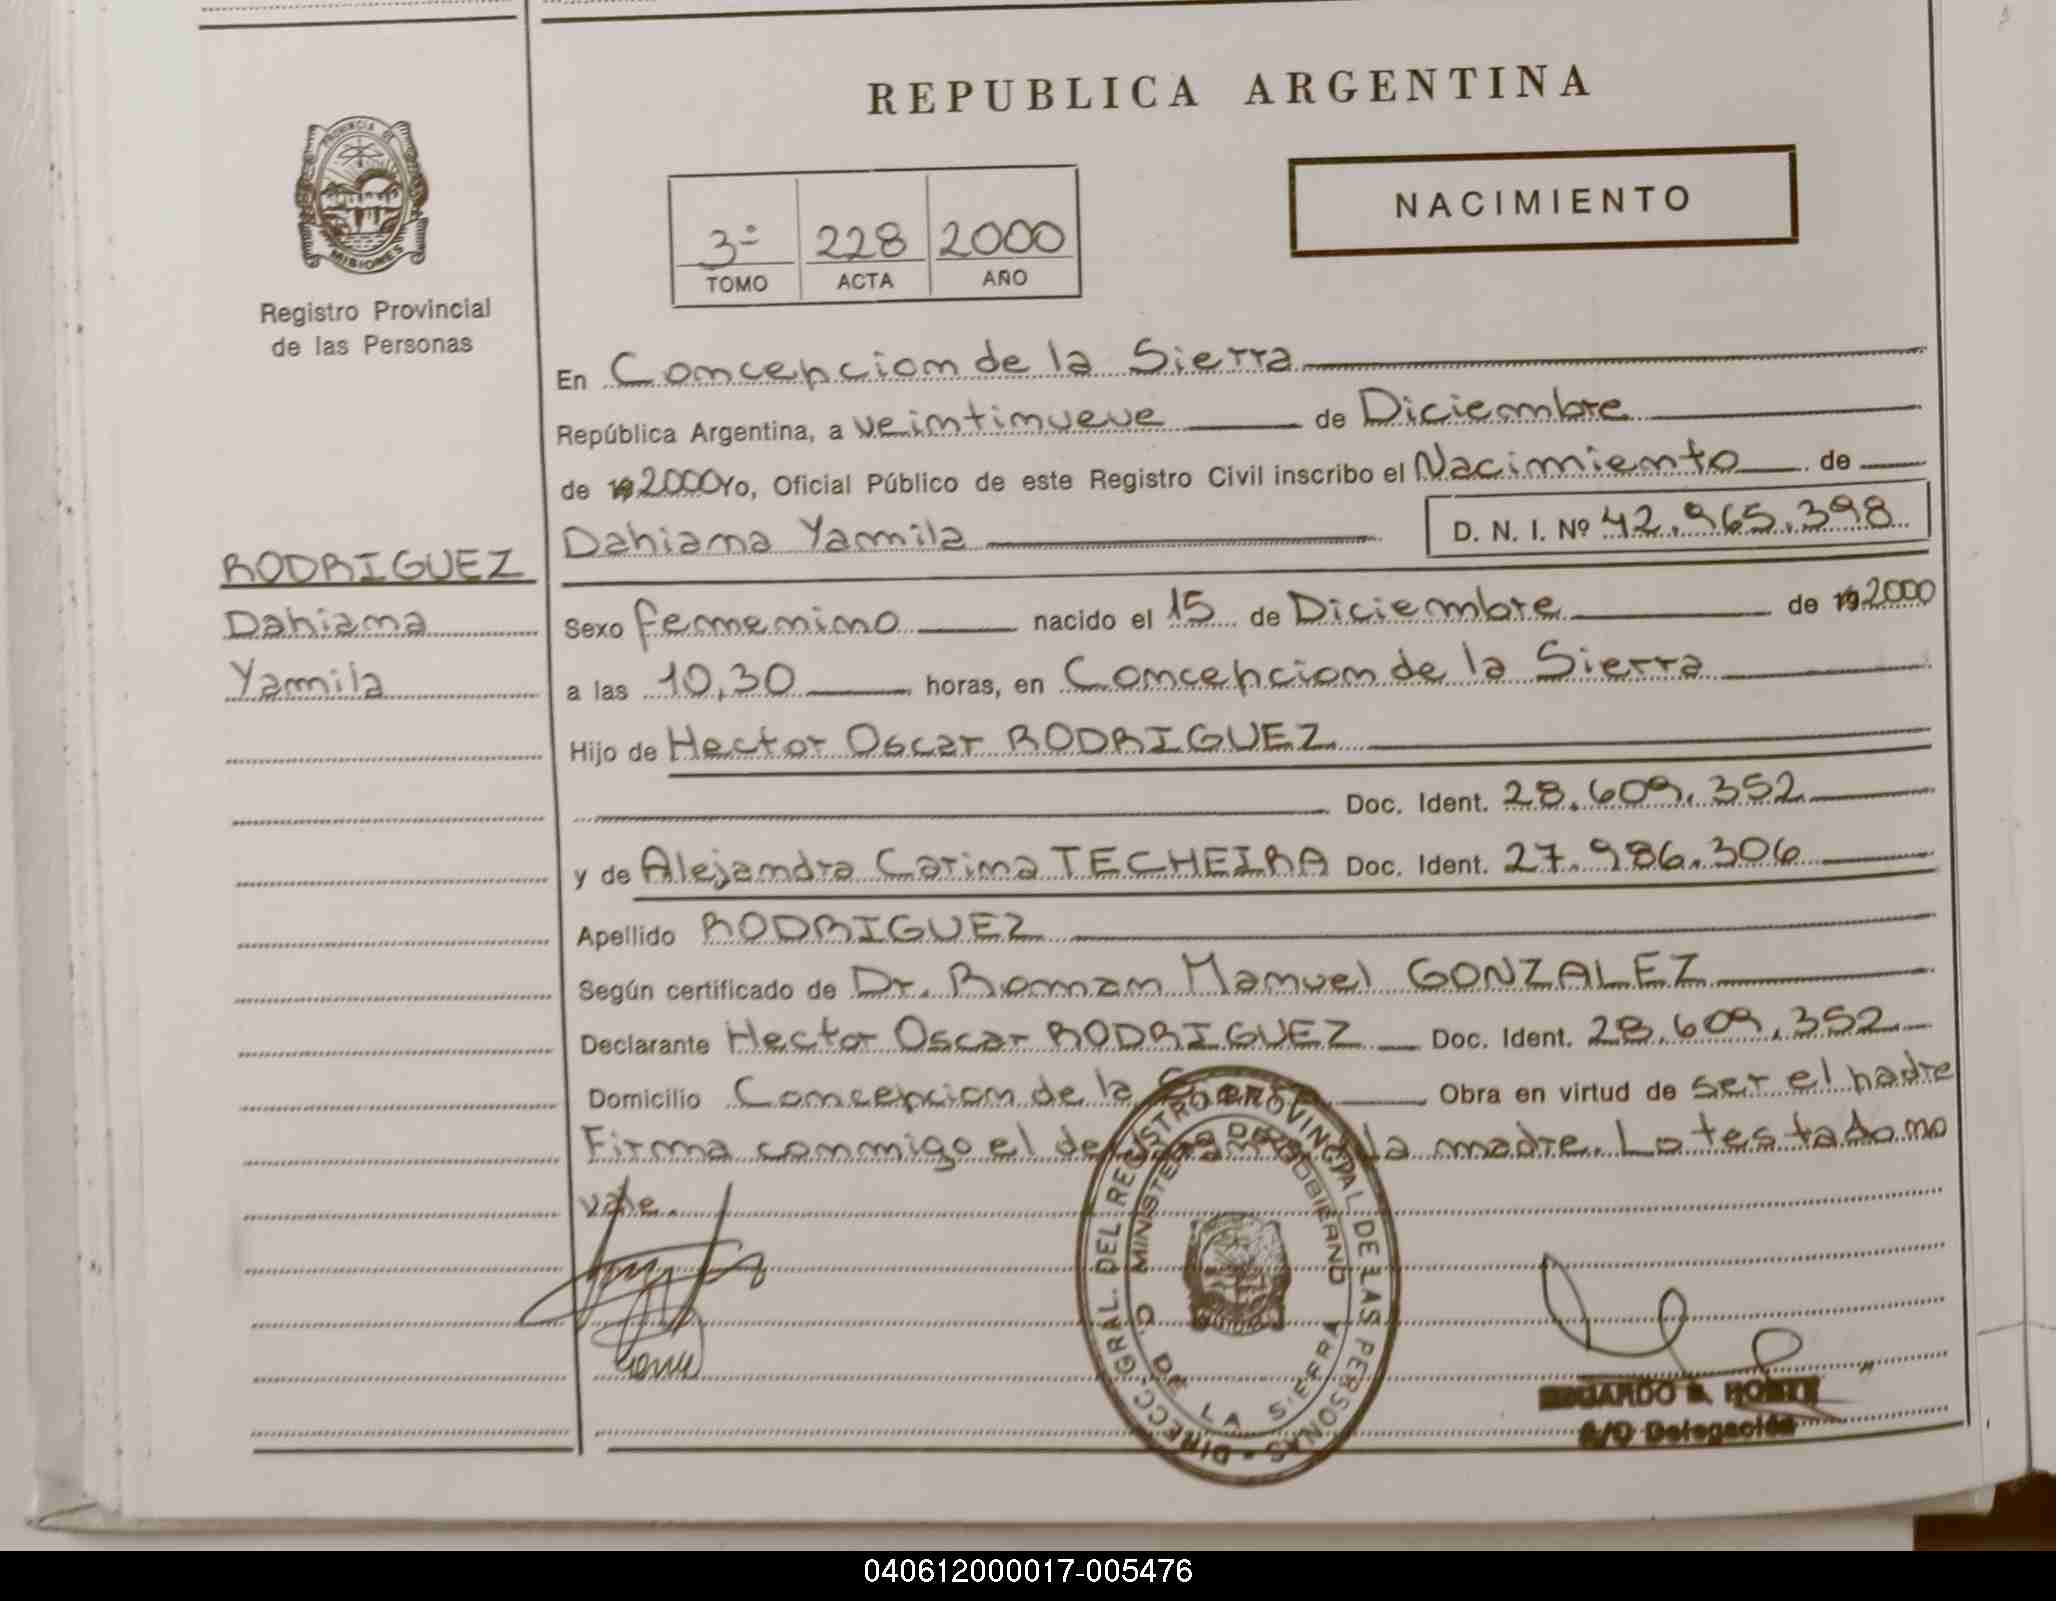 REPUBLICA ARGENTINA
NACIMIENTO
PROVINCIA DE
MISIONES
Registro Provincial
de las Personas
3º 228 2000
TOMO ACTA AÑO
En Concepcion de la Sierra
República Argentina, a veintinueve de Diciembre
de 192000 Yo, Oficial Público de este Registro Civil inscribo el Nacimiento de
Dahiana Yamila D. N. I. Nº 42.965.398
RODRIGUEZ
Dahiana
Yamila
Sexo femenino nacido el 15 de Diciembre de 192000
a las 10,30 horas, en Concepcion de la Sierra
Hijo de Hector Oscar RODRIGUEZ
Doc. Ident. 28.609.352
y de Alejandra Carina TECHEIRA Doc. Ident. 27.986.306
Apellido RODRIGUEZ
Según certificado de Dr. Roman Manuel GONZALEZ
Declarante Hector Oscar RODRIGUEZ Doc. Ident. 28.609.352
Domicilio Concepcion de la Sierra Obra en virtud de ser el padre
Firma conmigo el declarante la madre. Lo testado no
vale.
DIRECC. GRAL. DEL REGISTRO PROVINCIAL DE LAS PERSONAS
MINISTERIO DE GOBIERNO
C. DE LA SIERRA
EDUARDO
Delegación
040612000017-005476